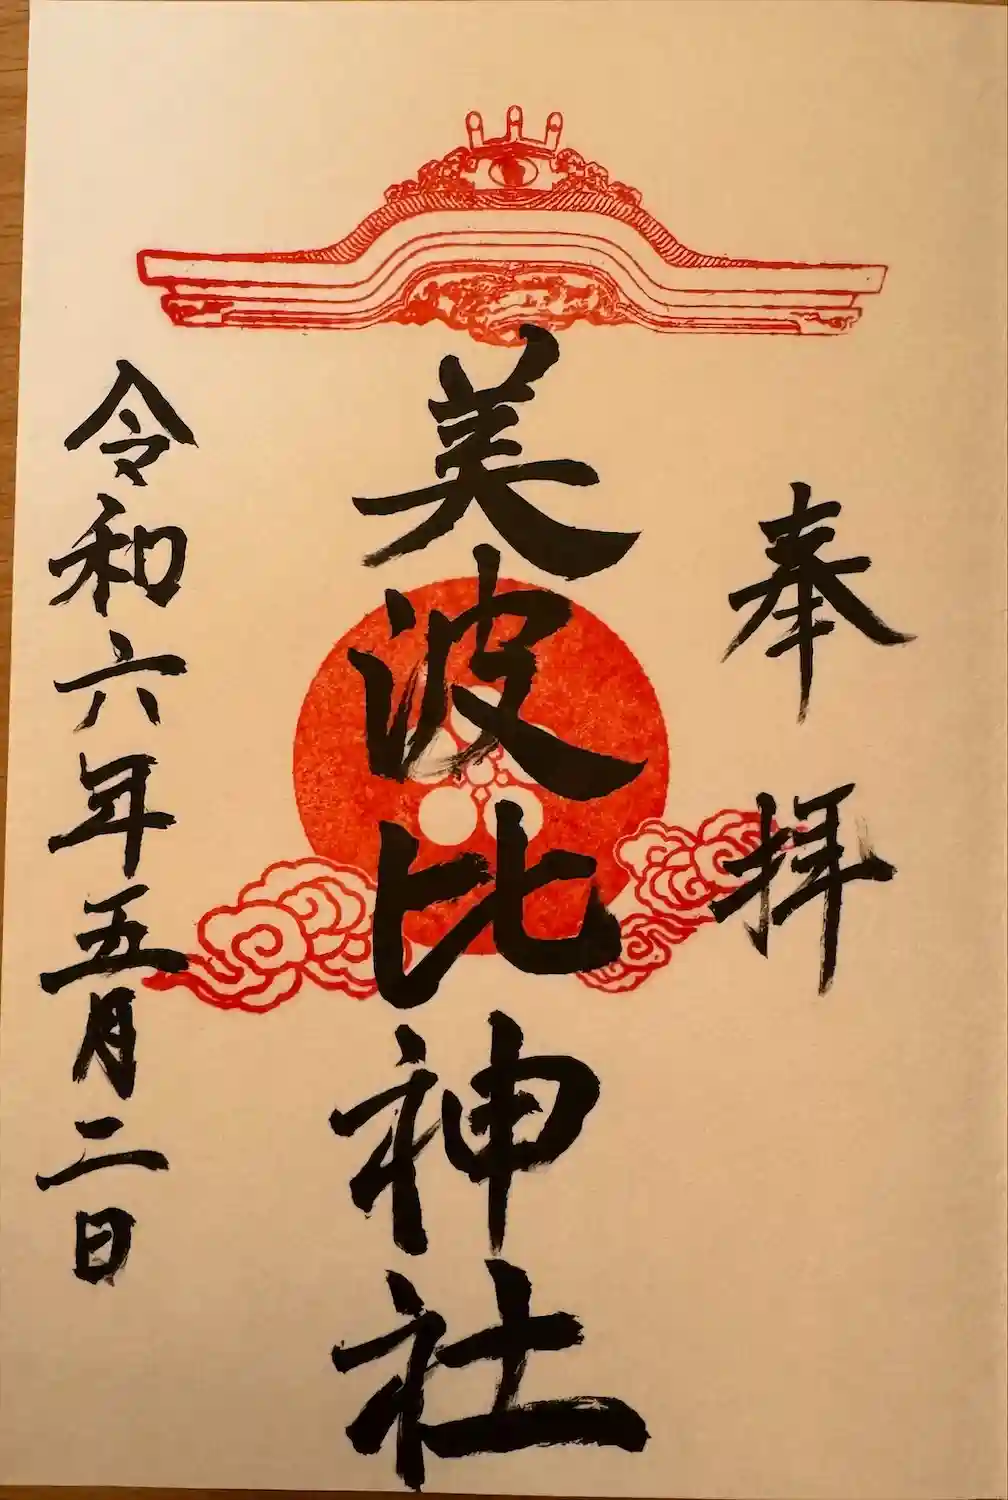 奉拝
美波比神社
令和六年五月二日